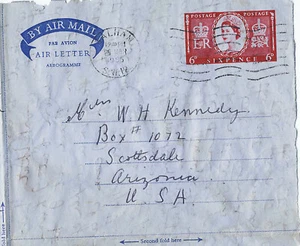 BY AIR MAIL
PAR AVION
AIR LETTER
AEROGRAMME
POSTAGE POSTAGE
E R
6D SIXPENCE 6D
S.W.19
Miss W H Kennedy
Box # 1072
Scottsdale
Arizonia
U S A
Second fold here
fold here